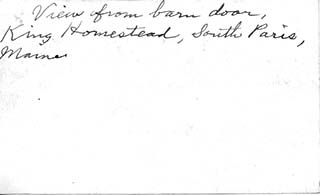 View from barn door,
King Homestead, South Paris,
Maine